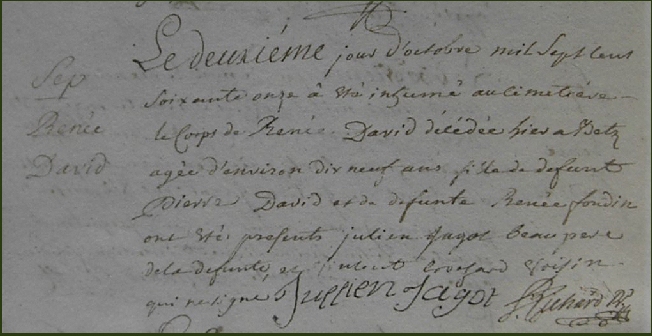 Sep
Renée
David
Le deuxiéme jour d'octobre mil Sept Cent
soixante onze à été inhumé au Cimetiére
le Corps de Renée David décédée hier a
agée d'environ dix neuf ans fille de defunt
Pierre David et de defunte Renée
ont été presents julien Jagot beau pere
de la defunte, et voisin
qui ne signe Jullien Jagot